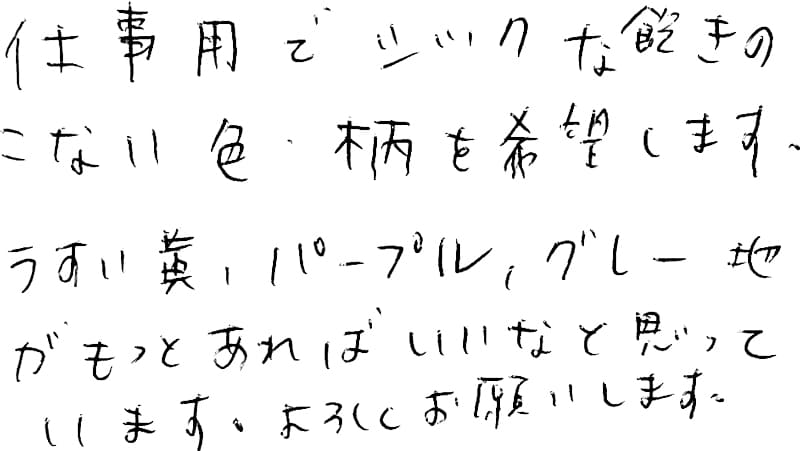 仕事用でシックな飽きの
こない色・柄を希望します、
うすい黄、パープル、グレー地
がもっとあればいいなと思って
います。よろしくお願いします。